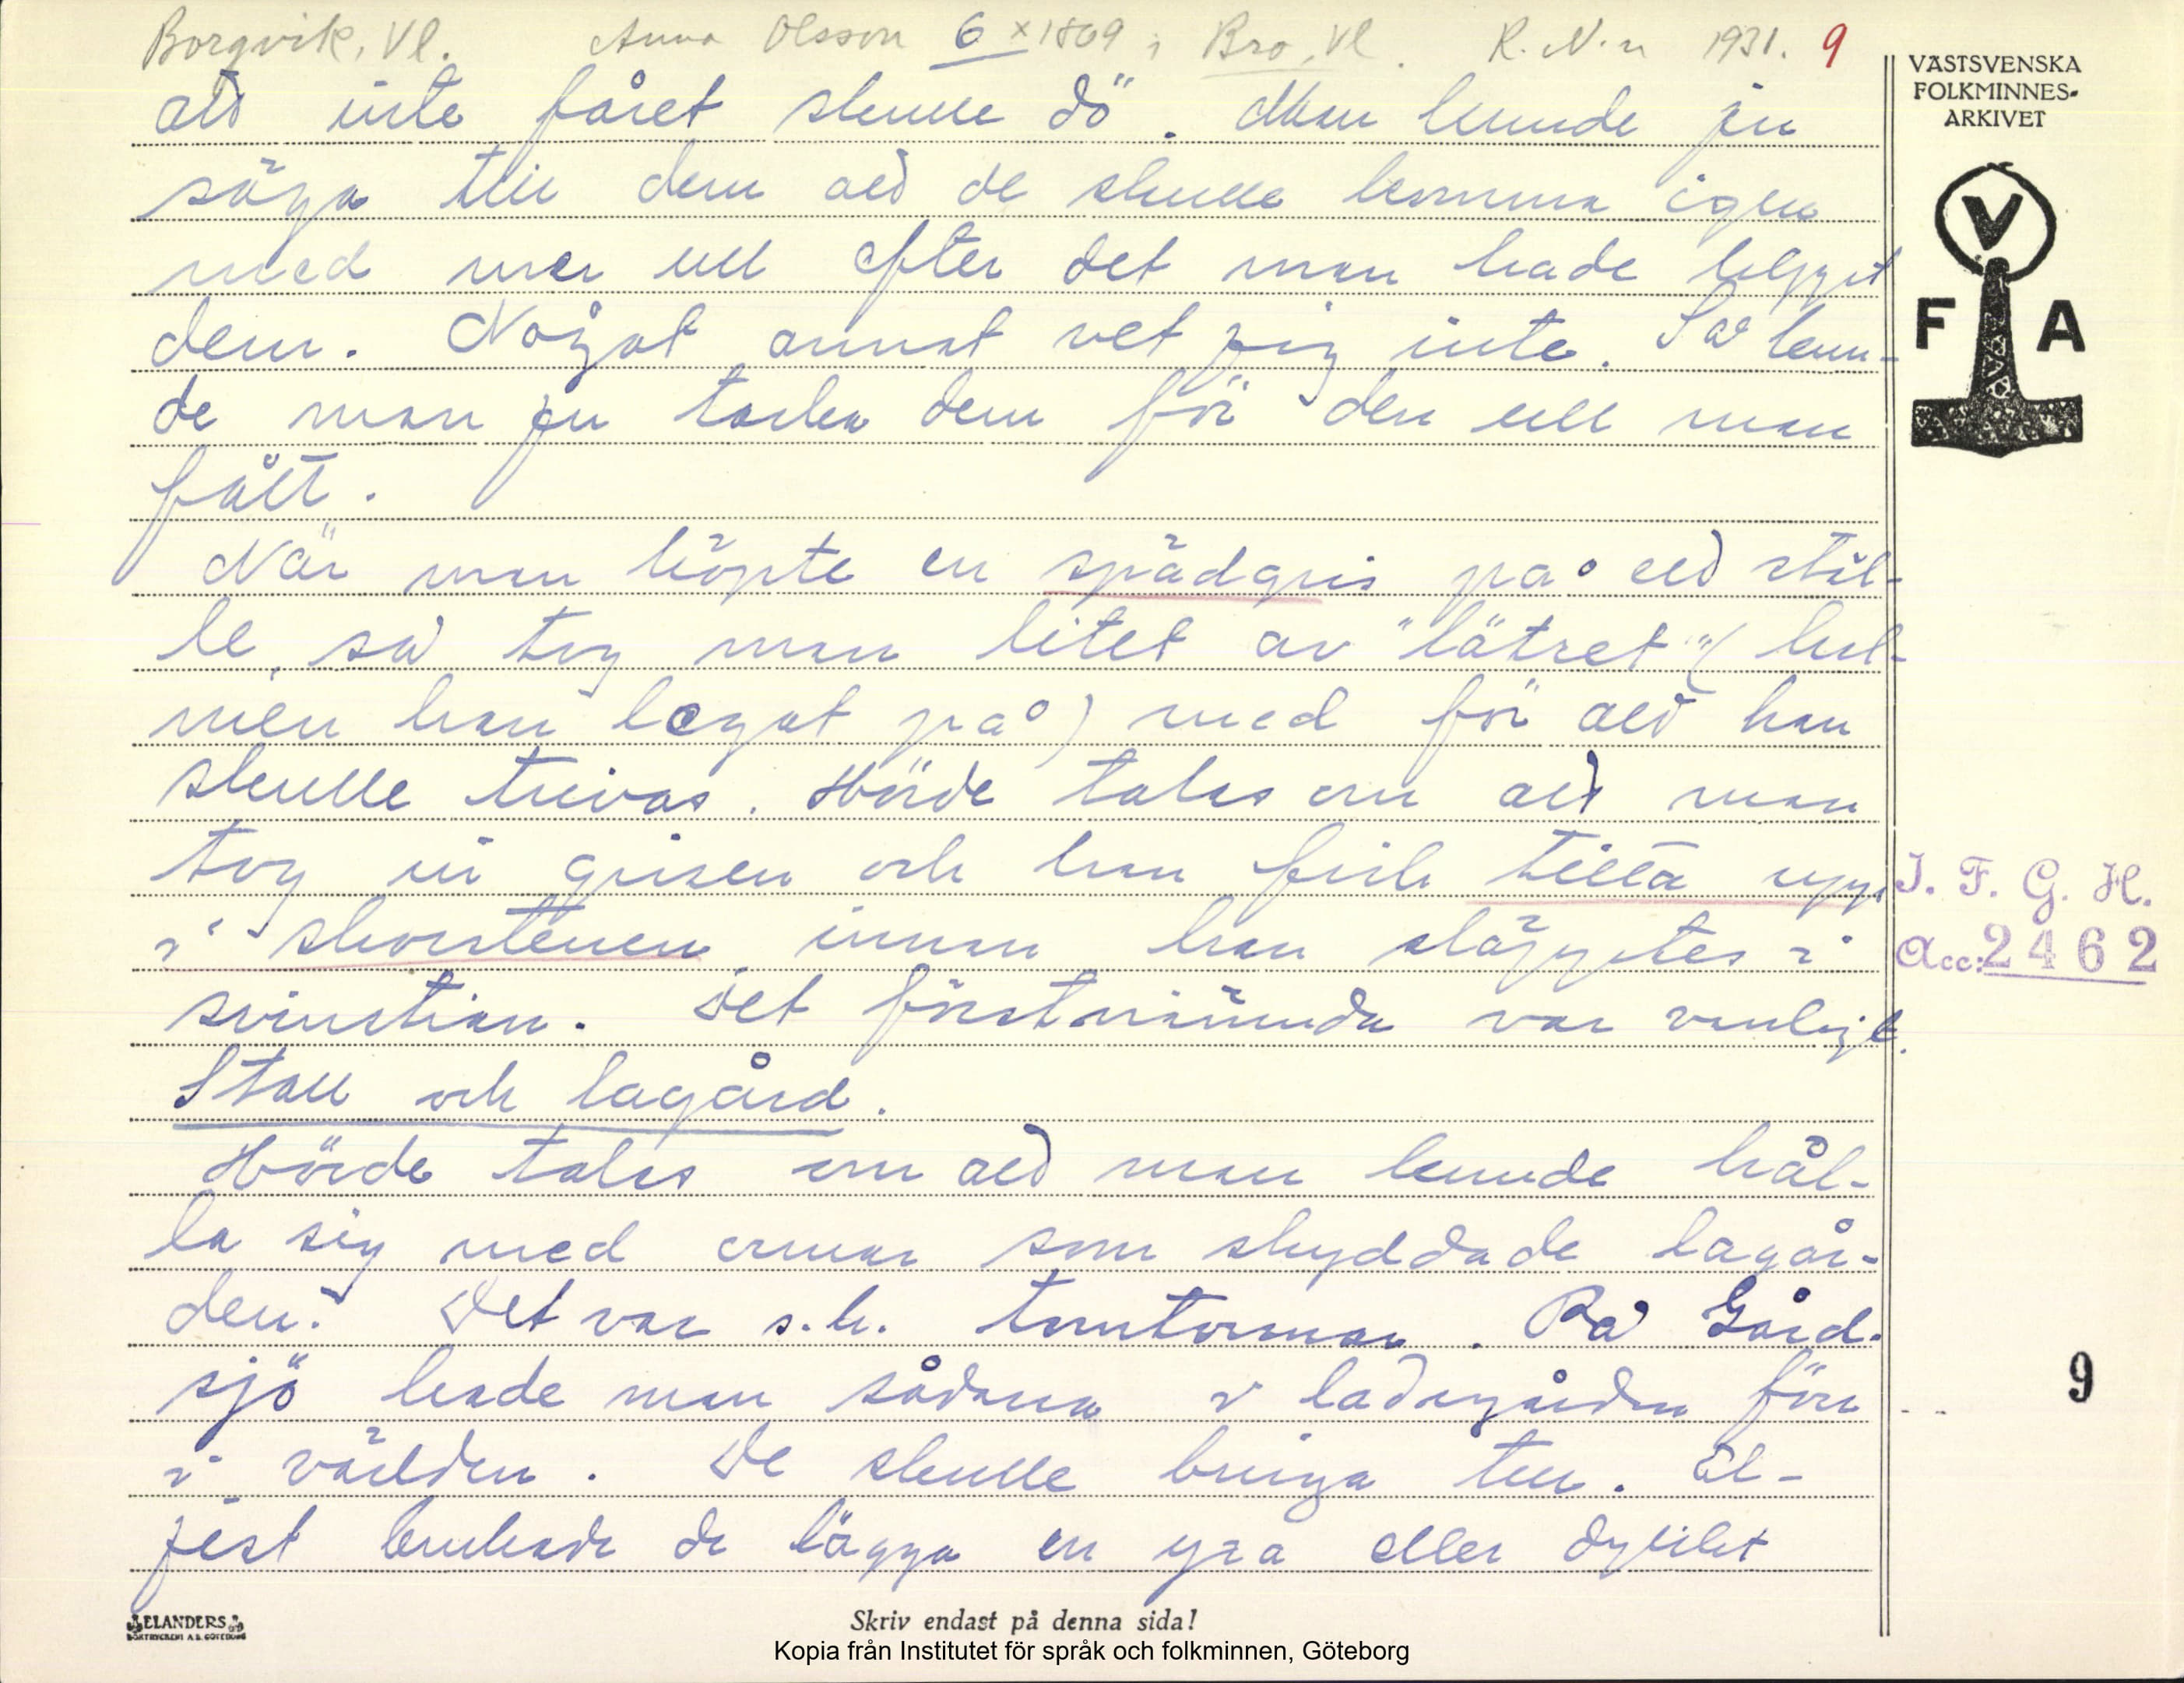 Borgvik, Vl. Anna Olsson 6 x 1869 i Bro, Vl. R. N-n 1931. 9
att inte fåret skulle dö". Man kunde ju
säga till dem att de skulle komma igen
med mer ull efter det man hade klippt
dem. Något annat vet jag inte. Så kun-
de man ju tacka dem för den ull man
fått.
När man köpte en spädgris på ett stäl-
le, så tog man litet av "lätret" (hal-
men han legat på) med för att han
skulle trivas. Hörde talas om att man
tog in grisen och han fick titta upp
i skorstenen innan han släpptes i
svinstian. Det förstnämnda var vanligt.
Stall och lagård.
Hörde talas om att man kunde hål-
la sig med ormar som skyddade lagår-
den. Det var s.k. tomtormar. På Gård-
sjö hade man sådana i ladugården förr
i världen. De skulle bringa tur. El-
jest brukade de lägga en yxa eller dylikt
VÄSTSVENSKA
FOLKMINNES-
ARKIVET
V
F A
I. F. G. H.
Acc: 2462
9
ELANDERS
BOKTRYCKERI A.B. GÖTEBORG
Skriv endast på denna sida!
Kopia från Institutet för språk och folkminnen, Göteborg